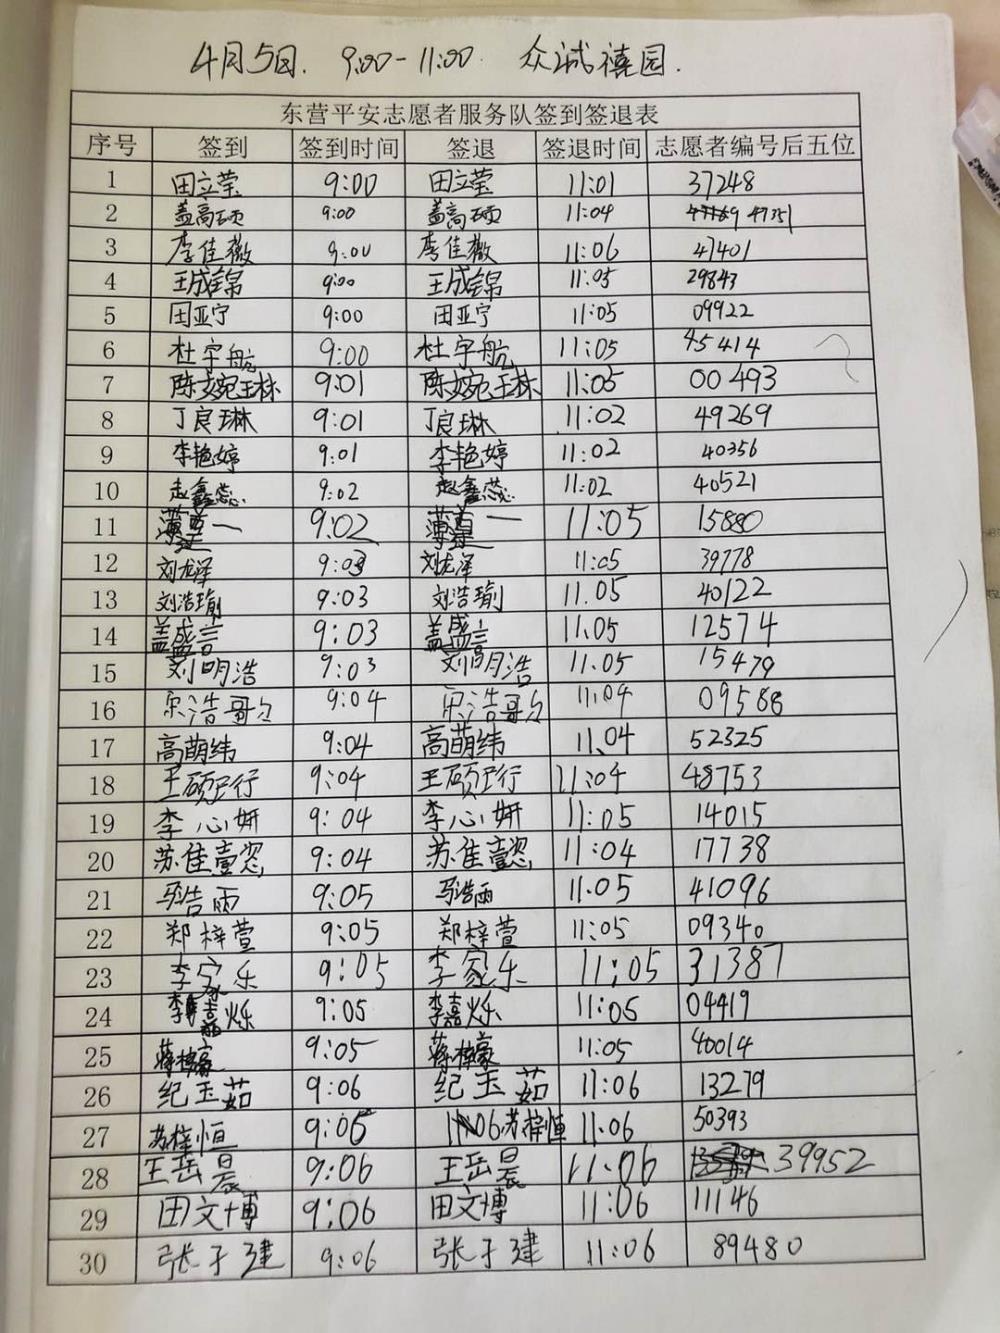 4月5日. 9:00-11:00. 众诚禧园.
东营平安志愿者服务队签到签退表
序号 签到 签到时间 签退 签退时间 志愿者编号后五位
1 田立莹 9:00 田立莹 11:01 37248
2 盖高硕 9:00 盖高硕 11:04 47351
3 李佳薇 9:00 李佳薇 11:06 47401
4 王成锦 9:00 王成锦 11:05 29843
5 田亚宁 9:00 田亚宁 11:05 09922
6 杜宇航 9:00 杜宇航 11:05 45414
7 陈婉玉林 9:01 陈婉玉林 11:05 00493
8 丁良琳 9:01 丁良琳 11:02 49269
9 李艳婷 9:01 李艳婷 11:02 40356
10 赵鑫蕊 9:02 赵鑫蕊 11:02 40521
11 一 9:02 一 11:05 15880
12 刘龙泽 9:03 刘龙泽 11:05 39778
13 刘浩瑜 9:03 刘浩瑜 11.05 40122
14 盖盛言 9:03 盖盛言 11.05 12574
15 刘明浩 9:03 刘明浩 11.05 15479
16 宋浩哥 9:04 宋浩哥 11:04 09588
17 高萌纬 9:04 高萌纬 11.04 52325
18 王硕行 9:04 王硕行 11:04 48753
19 李心妍 9:04 李心妍 11:05 14015
20 苏佳壹 9:04 苏佳壹 11:04 17738
21 马浩雨 9:05 马浩雨 11.05 41096
22 郑梓萱 9:05 郑梓萱 11:05 09340
23 李家乐 9:05 李家乐 11:05 31387
24 李嘉烁 9:05 李嘉烁 11:05 04419
25 蒋梓豪 9:05 蒋梓豪 11:05 40014
26 纪玉茹 9:06 纪玉茹 11:06 13279
27 苏梓恒 9:05 11:06 苏梓恒 11:06 50393
28 王岳晨 9:06 王岳晨 11:06 39952
29 田文博 9:06 田文博 11:06 11146
30 张于建 9:06 张于建 11:06 89480